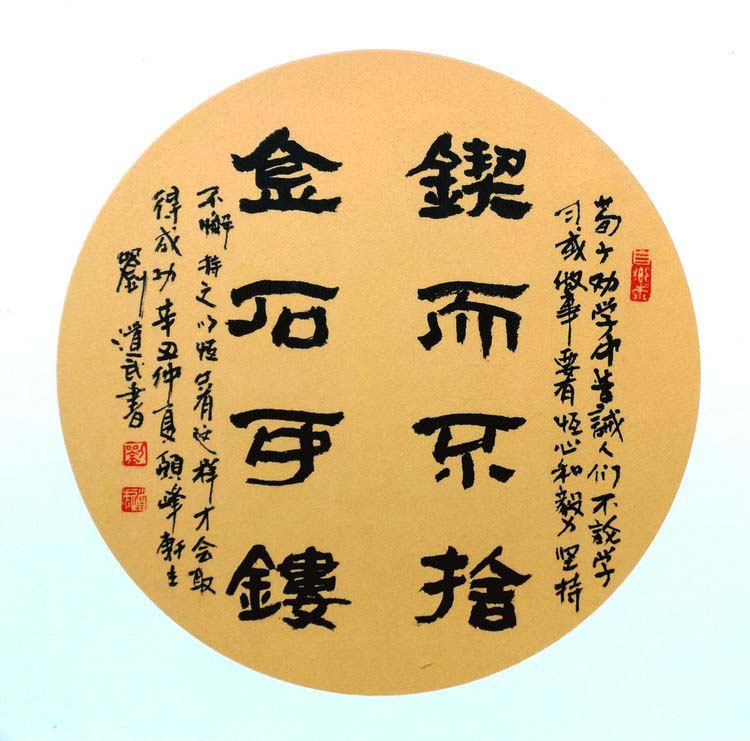 鍥而不捨
金石可鏤
荀子劝学中告誡人们不論学
习或做事要有恒心和毅力坚持
不懈持之以恒只有这样才会取
得成功辛丑仲夏峰軒主
劉道武書
劉